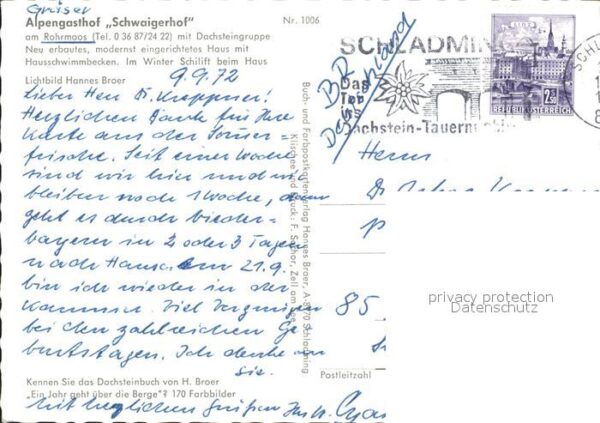 Alpengasthof „Schwaigerhof"
am Rohrmoos (Tel. 0 36 87/24 22) mit Dachsteingruppe
Neu erbautes, modernst eingerichtetes Haus mit
Hausschwimmbecken. Im Winter Schilift beim Haus
Lichtbild Hannes Broer
Nr. 1006
9.9.72
Lieber Herr Dr.
Herzlichen Dank für Ihre
Karte aus der Sommer=
frische. Seit einer Woche
sind wir hier und wir
bleiben noch 1 Woche, dann
geht es durch Nieder=
bayern in 2 oder 3 Tagen
nach Hause. Am 21.9.
bin ich wieder in der
Kammer. Viel Vergnügen
bei den zahlreichen Ge
burtstagen. Ich denke an
Sie.
Kennen Sie das Dachsteinbuch von H. Broer
„Ein Jahr geht über die Berge"? 170 Farbbilder
Mit herzlichen Grüßen Ihr
Buch- und Farbpostkartenverlag Hannes Broer, A-8970 Schladming
Klischee und Druck: F. Sochor, Zell am See
SCHLADMIN
Das
Tor
ins
Dachstein-Tauern
LINZ
2.50
REPUBLIK ÖSTERREICH
SCHL
BR
Herrn
Dr.
85
Postleitzahl
privacy protection
Datenschutz